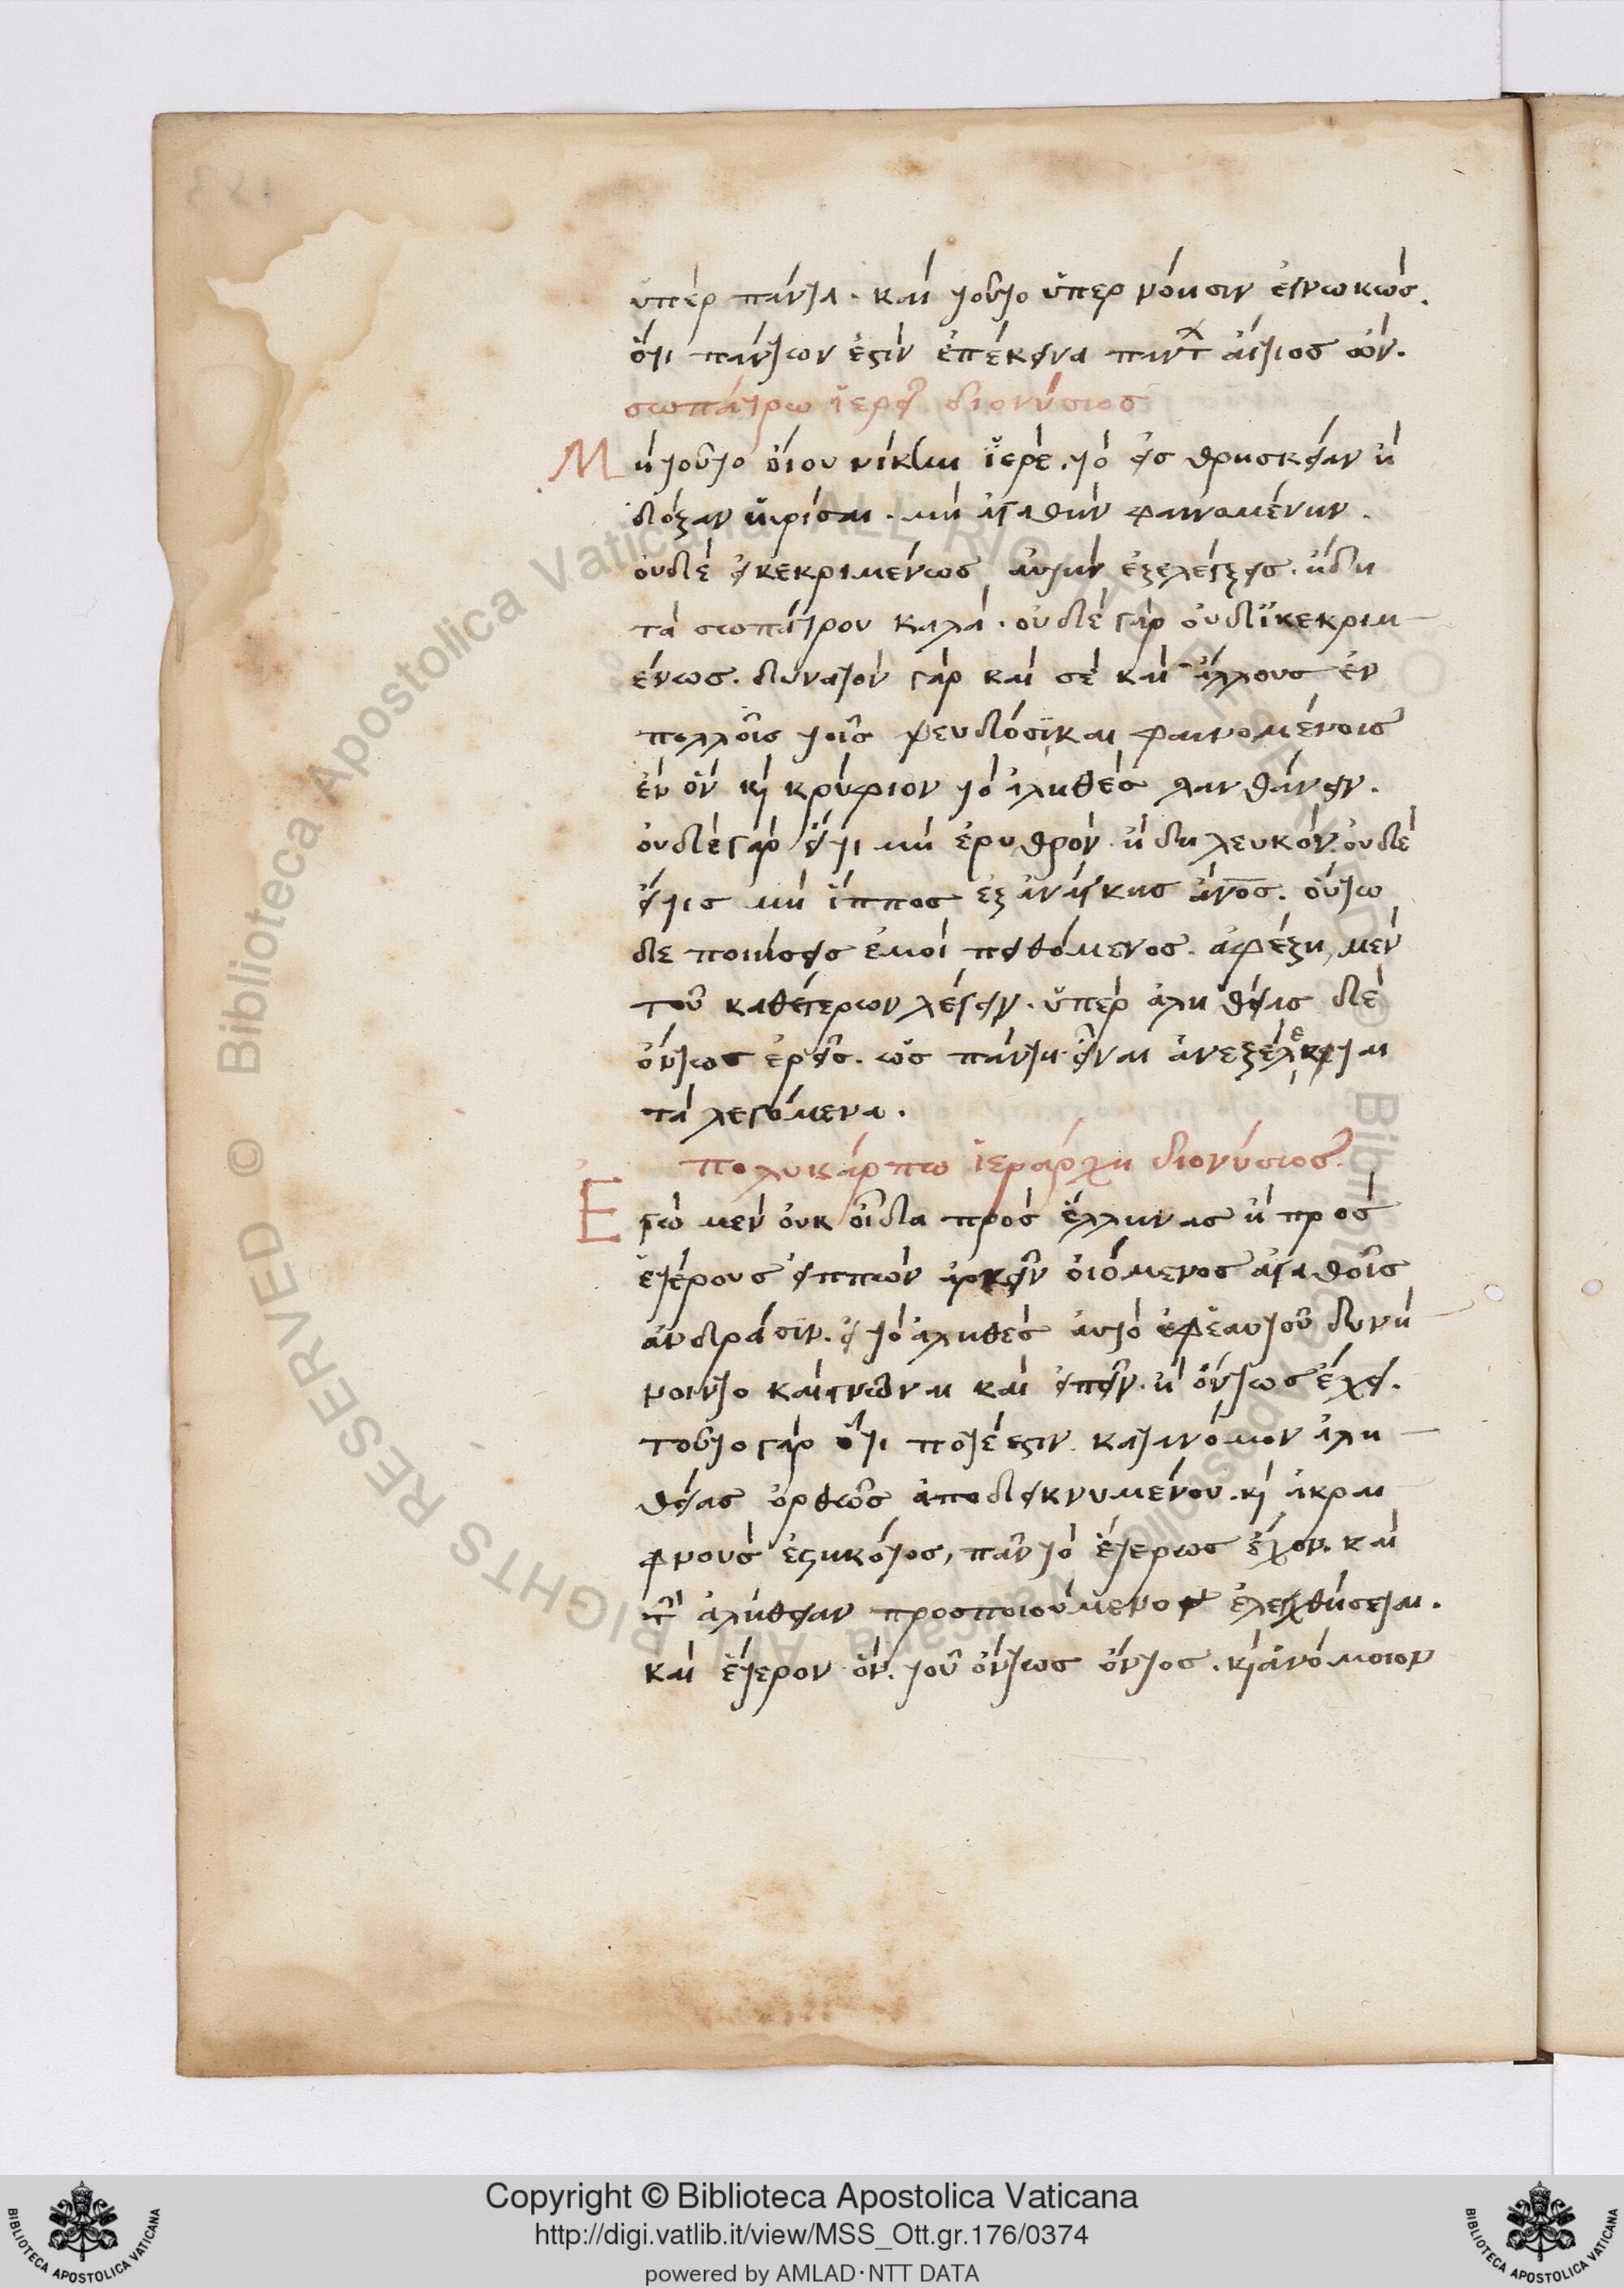 ὑπὲρ πάντα. καὶ τοῦτο ὑπὲρ νόησιν ἐγνωκὼς.
ὅτι πάντων ἐστὶν ἐπέκεινα πάντ αἴτιος ὢν.
σωπάτρω ἱερεῖ διονύσιος
Μὴ τοῦτο οἴου νίκην ἱερὲ. τὸ εἰς θρησκείαν ἢ
δόξαν ὑβρίσαι. μὴ ἀγαθὴν φαινομένην.
οὐδὲ εἰ κεκριμένως αὐτὴν ἐξελέγξεις. ἤδη
τὰ σωπάτρου καλά. οὐδὲ γὰρ οὐδὶ κεκριμ
ένως. δυνατὸν γὰρ καὶ σὲ καὶ ἄλλους ἐν
πολλοῖς τοῖς ψευδόσι καὶ φαινομένοις
ἓν ὂν κὶ κρύφιον τὸ ἀληθὲς λανθάνειν.
οὐδὲ γὰρ εἴ τι μὴ ἐρυθρὸν ἤδη λευκὸν. οὐδὲ
εἴ τις μὴ ἵππος ἐξ ἀνάγκης ἄνος. οὕτω
δὲ ποιήσεις ἐμοὶ πειθόμενος. ἀφέξη μὲν
τοῦ καθ ἑτέρων λέγειν. ὑπὲρ ἀληθείας δὲ
ὄντως ἐρεῖς. ὡς πάντη εἶναι ἀνεξέλεγκτα
τὰ λεγόμενα.
πολυκάρπω ἱεράρχη διονύσιος.
Ἐγὼ μὲν οὐκ οἶδα πρὸς ἕλληνας ἢ πρὸς
ἑτέρους εἰππὼν ἀρκεῖν οἰόμενος ἀγαθοῖς
ἀνδράσιν. εἰ τὸ ἀληθὲς αὐτὸ ἐφ ἑαυτοῦ δυνή
νοιντο καὶ γνῶναι καὶ εἰπεῖν. ἢ ὄντως ἔχει.
τοῦτο γὰρ ὅτι πότέ ἐστιν κατανόμον ἀλη
θείας ὀρθῶς ἀποδεικνυμένου. κὶ ἀκραι
φνοῦς ἑστηκότος, πᾶν τὸ ἑτέρως ἔχον. καὶ
τὴν ἀλήθειαν προσποιούμενον ἐλεχθήσεται.
καὶ ἕτερον ὂν. τοῦ ὄντως ὄντος. κὶ ἀνόμοιον
Copyright © Biblioteca Apostolica Vaticana
http://digi.vatlib.it/view/MSS_Ott.gr.176/0374
powered by AMLAD·NTT DATA